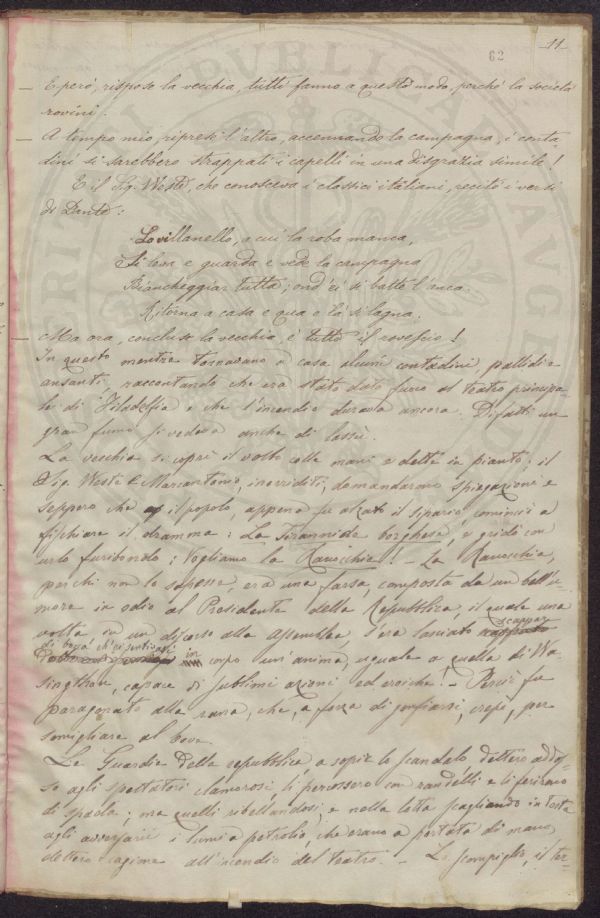 11
62
— E però, rispose la vecchia, tutti fanno a questo modo, perché la società
rovini.
— A tempo mio, riprese l'altro, accennando la campagna, i conta-
dini si sarebbero strappati i capelli in una disgrazia simile!
E il Sig. Weste, che conosceva i classici italiani, recitò i versi
di Dante:
Lo villanello, a cui la roba manca,
Si leva e guarda e vede la campagna
Biancheggiar tutta; ond'ei si batte l'anca.
Ritorna a casa e qua e là si lagna.
— Ma ora, concluse la vecchia, è tutto il rovescio!
In questo mentre tornavano a casa alcuni contadini pallidi e
ansanti, raccontando che era stato dato fuoco al teatro principa-
le di Filadelfia e che l'incendio durava ancora. Difatti un
gran fumo si vedeva anche di lassù.
La vecchia si coprì il volto colle mani e dette in pianto; il
Sig. Weste e Marcantonio, inorriditi, domandarono spiegazioni e
seppero che il popolo, appena fu alzato il sipario, cominciò a
fischiare il dramma: La Tirannide borghese, e gridò con
urlo furibondo: Vogliamo la Ranocchia! — La Ranocchia,
per chi non lo sapesse, era una farsa, composta da un bell'u-
more in odio al Presidente della Repubblica, il quale una
volta in un discorso alla Assemblea, s'era lasciato scappar
di bocca, ch'ei sentivasi in corpo un'anima, uguale a quella di Wa-
singthon, capace di sublimi azioni ed eroiche! — Perciò fu
paragonato alla rana, che, a forza di gonfiarsi, crepò, per
somigliare al bove.
Le Guardie della repubblica a sopir lo scandalo dettero addos-
so agli spettatori clamorosi, li percossero con randelli e li ferirono
di spada; ma quelli ribellandosi, e nella lotta scagliando in testa
agli avversarii i lumi a petrolio, che erano a portata di mano,
dettero cagione all'incendio del teatro. — Lo scompiglio, il ter-